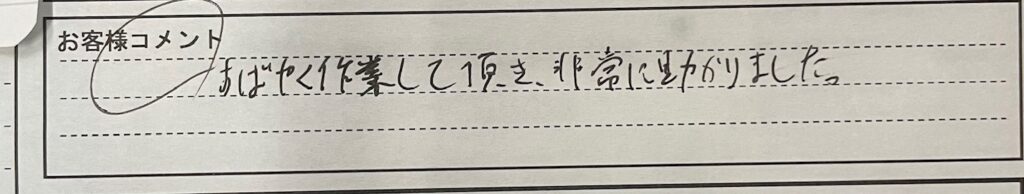 お客様コメント
すばやく作業して頂き、非常に助かりました。